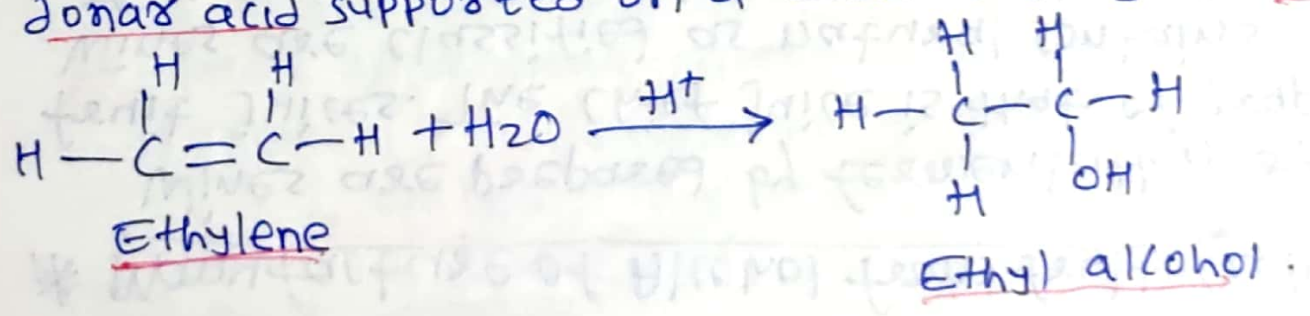 donar acid supported
H H H H
H—C=C—H + H2O —H+→ H—C—C—H
H OH
Ethylene
Ethyl alcohol.